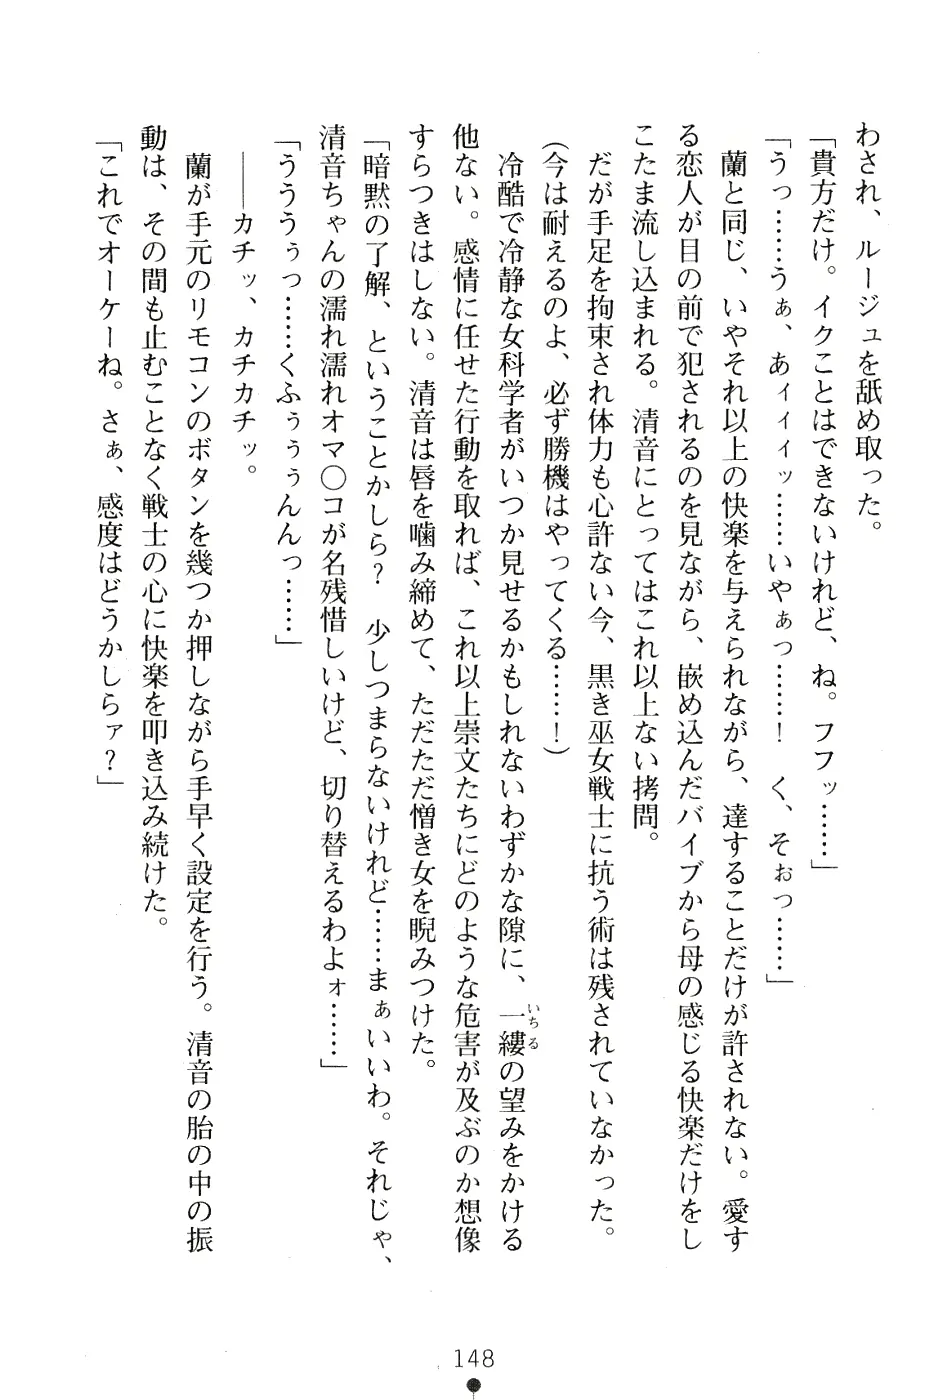 わされ、ルージュを舐め取った。
「貴方だけ。イクことはできないけれど、ね。フフッ……」
「うっ……うぁ、あィィィッ……いやぁっ……！　く、そぉっ……」
　蘭と同じ、いやそれ以上の快楽を与えられながら、達することだけが許されない。愛す
る恋人が目の前で犯されるのを見ながら、嵌め込んだバイブから母の感じる快楽だけをし
こたま流し込まれる。清音にとってはこれ以上ない拷問。
　だが手足を拘束され体力も心許ない今、黒き巫女戦士に抗う術は残されていなかった。
（今は耐えるのよ、必ず勝機はやってくる……！）
　冷酷で冷静な女科学者がいつか見せるかもしれないわずかな隙に、一縷の望みをかける
いちる
他ない。感情に任せた行動を取れば、これ以上崇文たちにどのような危害が及ぶのか想像
すらつきはしない。清音は唇を噛み締めて、ただただ憎き女を睨みつけた。
「暗黙の了解、ということかしら？　少しつまらないけれど……まぁいいわ。それじゃ、
清音ちゃんの濡れ濡れオマ〇コが名残惜しいけど、切り替えるわよォ……」
「うううぅっ……くふぅぅぅんんっ……」
　――カチッ、カチカチッ。
　蘭が手元のリモコンのボタンを幾つか押しながら手早く設定を行う。清音の胎の中の振
動は、その間も止むことなく戦士の心に快楽を叩き込み続けた。
「これでオーケーね。さぁ、感度はどうかしらァ？」
148